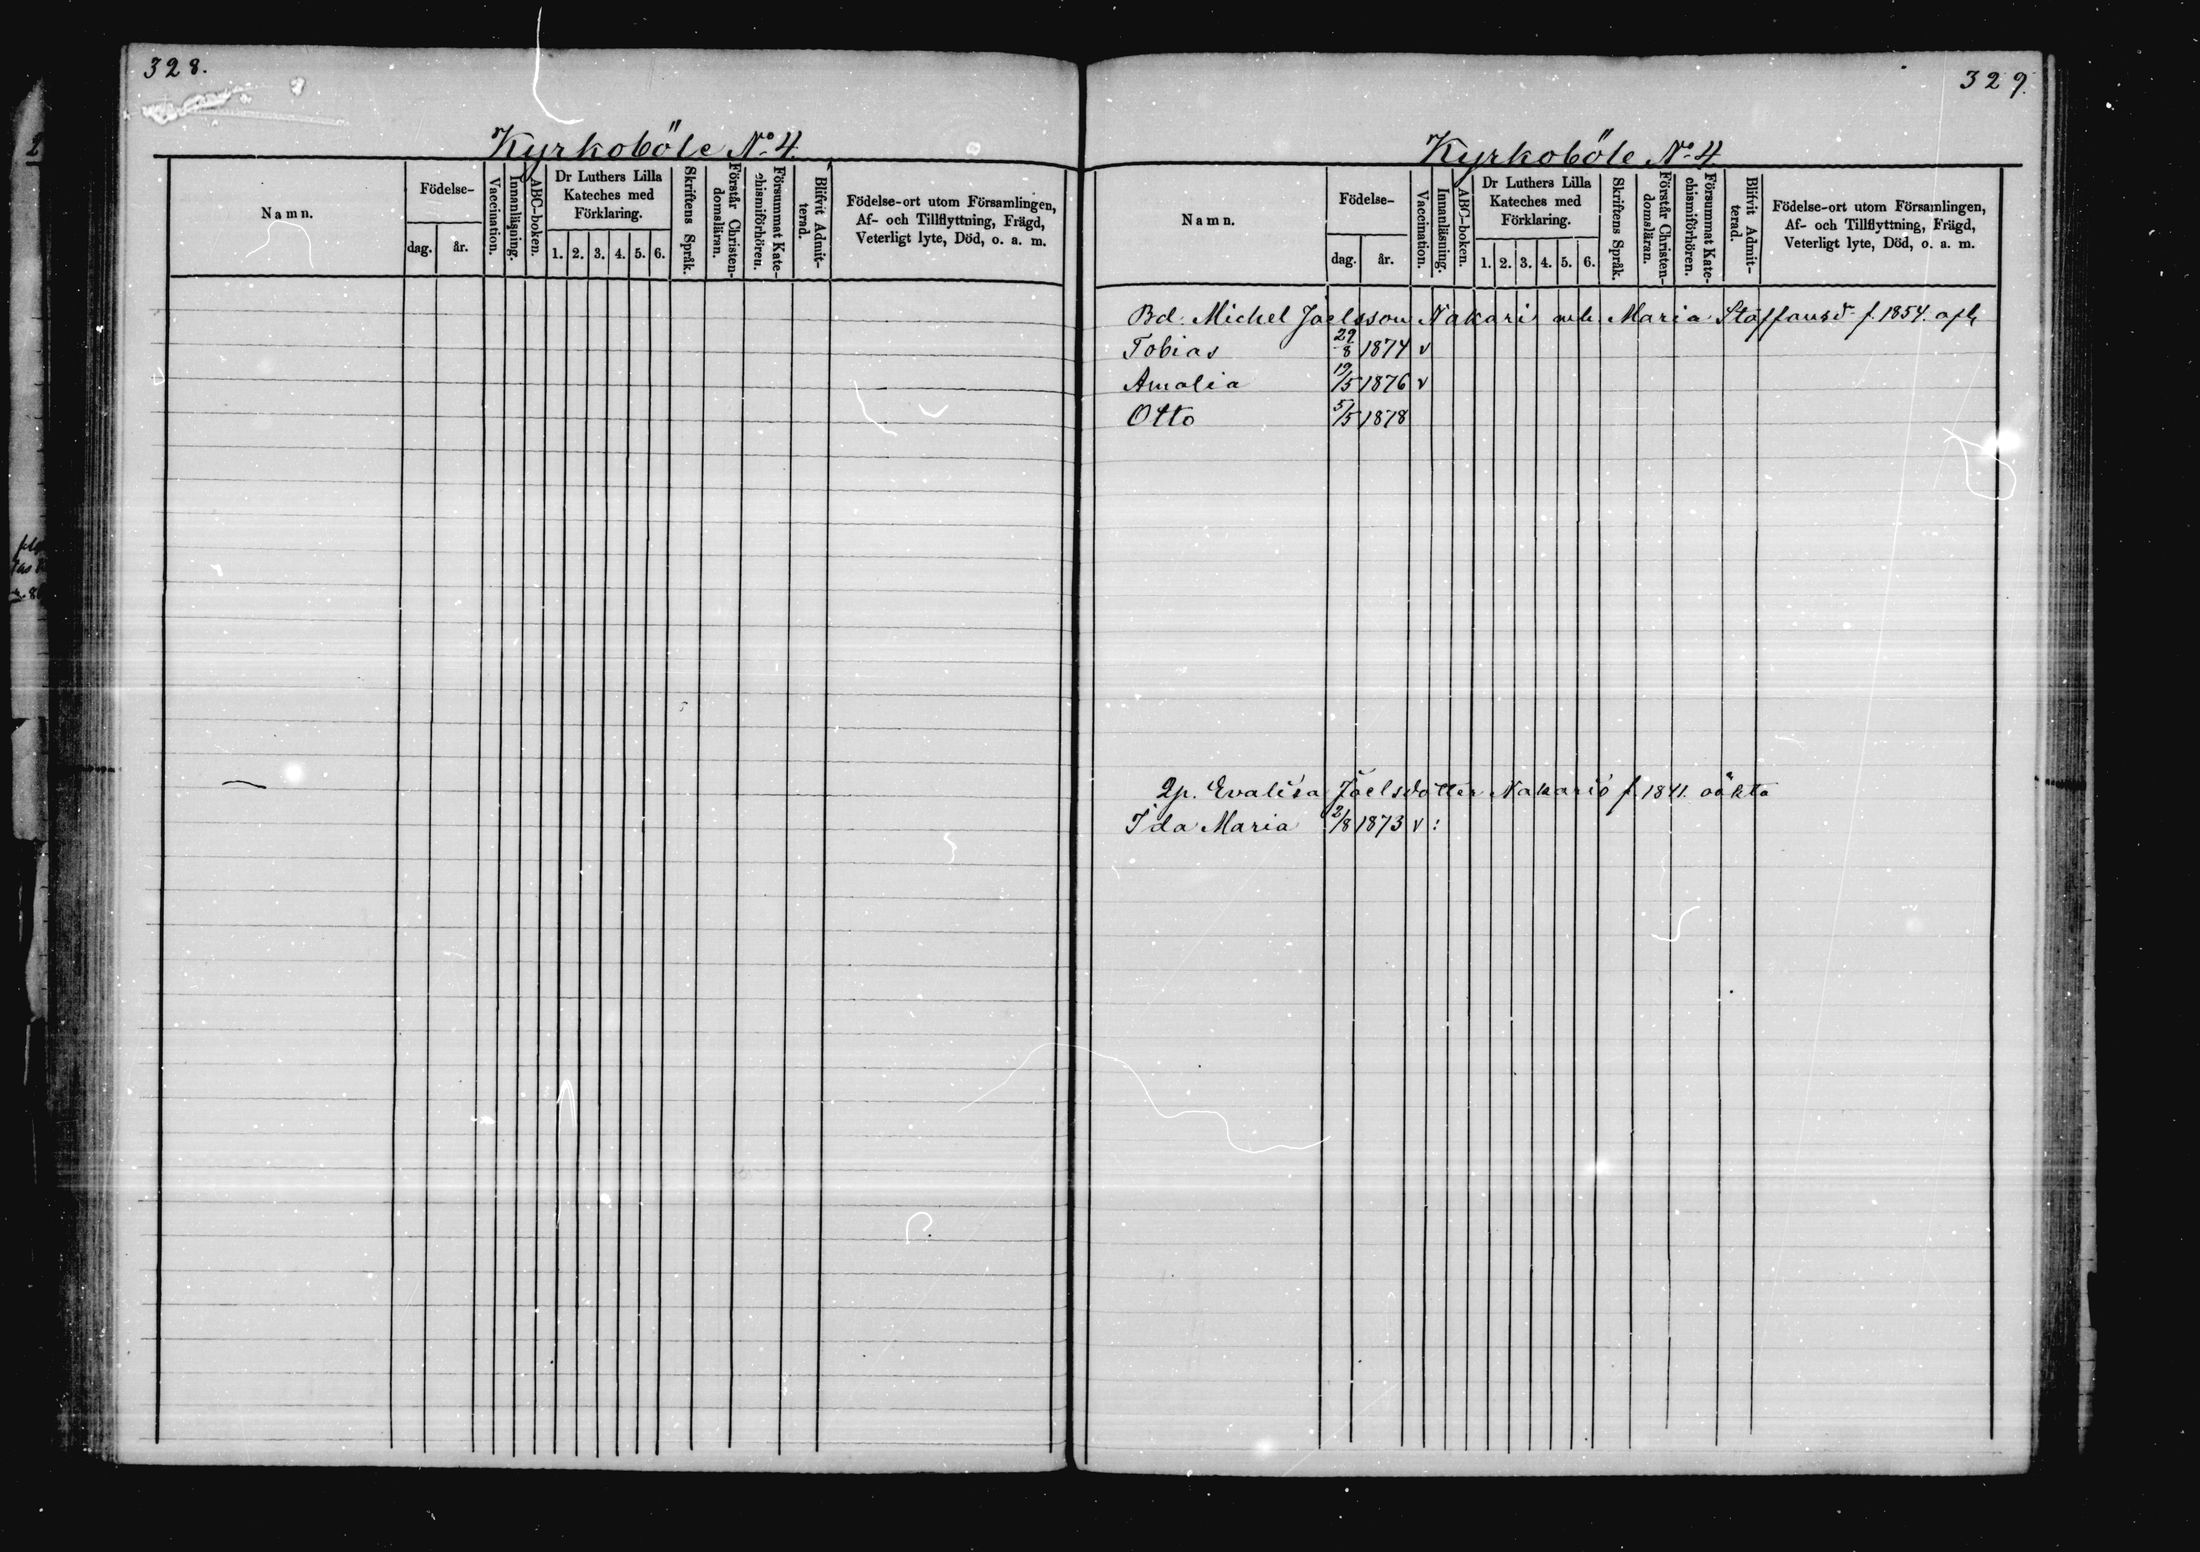 328.
Kyrkoböle No 4.
Namn.
Födelse-
dag.
år.
Vaccination.
Innanläsning.
ABC-boken.
Dr Luthers Lilla
Kateches med
Förklaring.
1. 2. 3. 4. 5. 6.
Skriftens Språk.
Förstår Christen-
domsläran.
Försummat Kate-
chismiförhören.
Blifvit Admit-
terad.
Födelse-ort utom Församlingen,
Af- och Tillflyttning, Frägd,
Veterligt lyte, Död, o. a. m.
329.
Kyrkoböle No 4
Namn.
Födelse-
dag.
år.
Vaccination.
Innanläsning.
ABC-boken.
Dr Luthers Lilla
Kateches med
Förklaring.
1. 2. 3. 4. 5. 6.
Skriftens Språk.
Förstår Christen-
domsläran.
Försummat Kate-
chismiförhören.
Blifvit Admit-
terad.
Födelse-ort utom Församlingen,
Af- och Tillflyttning, Frägd,
Veterligt lyte, Död, o. a. m.
Bd. Michel Joelsson Nakari och Maria Staffansd f. 1854.
Tobias 29/8 1874 v
Amalia 19/5 1876 v
Otto 5/5 1878
Qp. Evalisa Joelsdotter Nakari f. 1841. oäkta
Ida Maria 2/8 1873 v :